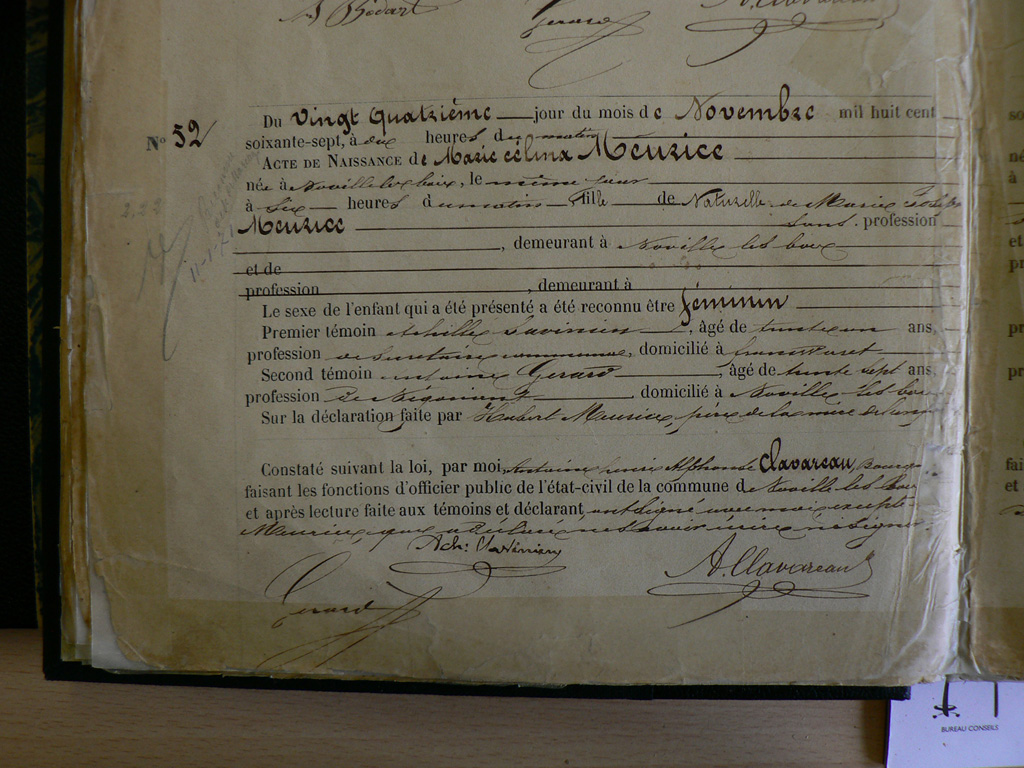 Bodart
Gerard
A. Clavareau
Nº 52
Du Vingt Quatrième jour du mois de Novembre mil huit cent
soixante-sept, à dix heures du matin
ACTE DE NAISSANCE de Marie célina Meurice
née à Noville les boix, le même jour
à six heures du matin fille de Naturelle de Marie Joseph
Meurice sans profession
, demeurant à Noville les boix
et de
profession , demeurant à
Le sexe de l'enfant qui a été présenté a été reconnu être féminin
Premier témoin Achille Lavinien , âgé de trente un ans,
profession de Secrétaire communal, domicilié à franc Waret
Second témoin antoine Gerard , âgé de trente sept ans,
profession de Négociant , domicilié à Noville les boix
Sur la déclaration faite par Hubert Meurice, père de la mère de
Constaté suivant la loi, par moi, Antoine Alphonse Clavareau, Bourg
faisant les fonctions d'officier public de l'état-civil de la commune de Noville les Boix
et après lecture faite aux témoins et déclarant, ont signé avec moi excepté
Meurice, qui a déclaré ne savoir écrire ni signer.
Ach: Lavinien
A. Clavareau
Gerard
BUREAU CONSEILS